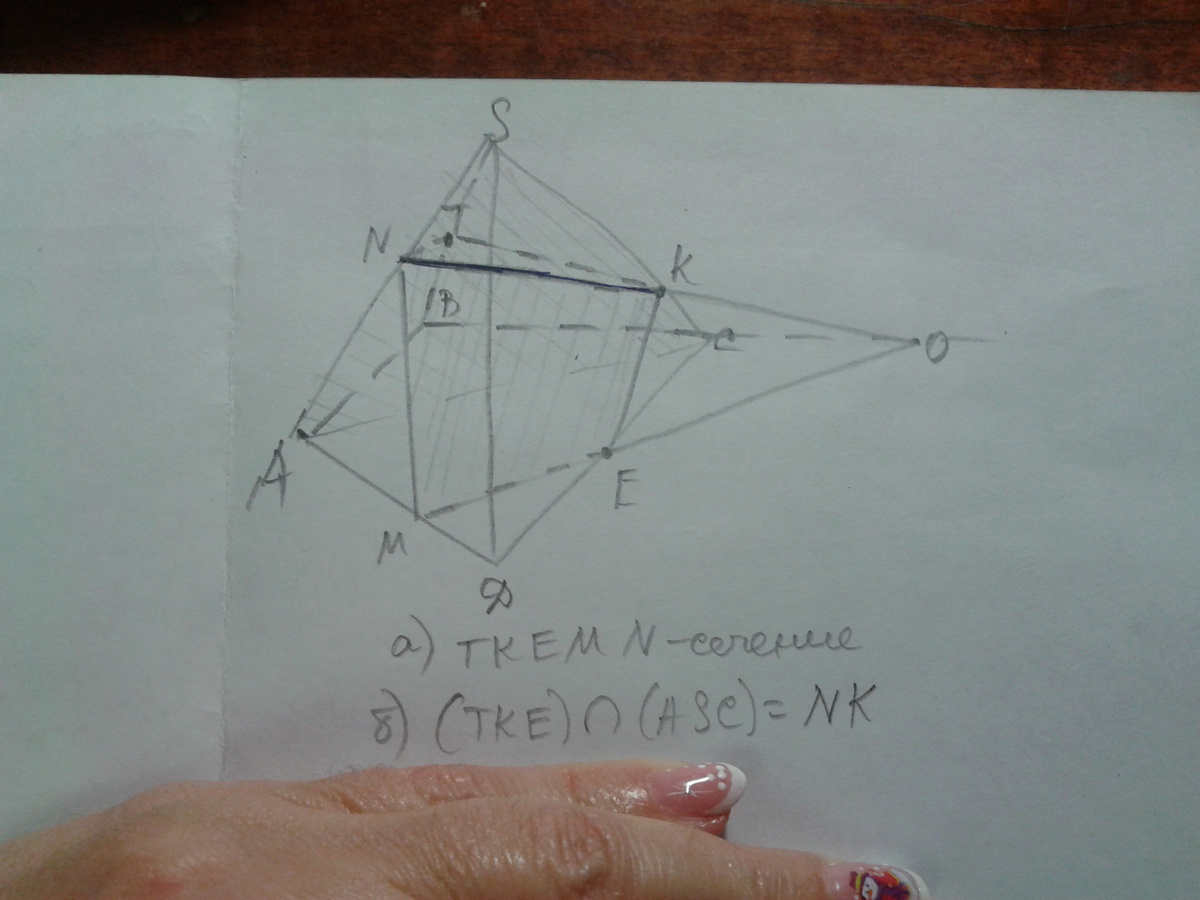 S
N T K
B C O
A
M E
D
а) TKEMN-сечение
б) (TKE)∩(ASC)=NK